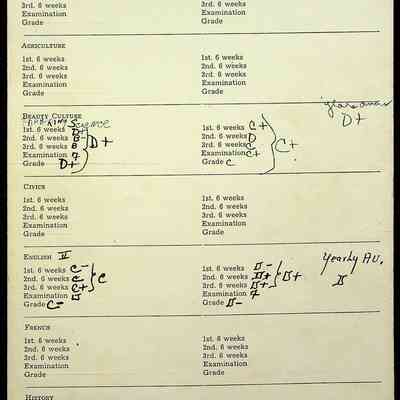 3rd. 6 weeks 3rd. 6 weeks
Examination Examination
Grade Grade
AGRICULTURE
1st. 6 weeks 1st. 6 weeks
2nd. 6 weeks 2nd. 6 weeks
3rd. 6 weeks 3rd. 6 weeks
Examination Examination
Grade Grade
BEAUTY CULTURE
Science
1st. 6 weeks D+ 1st. 6 weeks C+
2nd. 6 weeks 2nd. 6 weeks D
3rd. 6 weeks D+ 3rd. 6 weeks C+ D+
Examination Examination C+
Grade D+ Grade C
CIVICS
1st. 6 weeks 1st. 6 weeks
2nd. 6 weeks 2nd. 6 weeks
3rd. 6 weeks 3rd. 6 weeks
Examination Examination
Grade Grade
ENGLISH II Yearly AV.
1st. 6 weeks C- 1st. 6 weeks D-
2nd. 6 weeks C C 2nd. 6 weeks D+ D+ D
3rd. 6 weeks C+ 3rd. 6 weeks D+
Examination D Examination F
Grade C- Grade D-
FRENCH
1st. 6 weeks 1st. 6 weeks
2nd. 6 weeks 2nd. 6 weeks
3rd. 6 weeks 3rd. 6 weeks
Examination Examination
Grade Grade
HISTORY